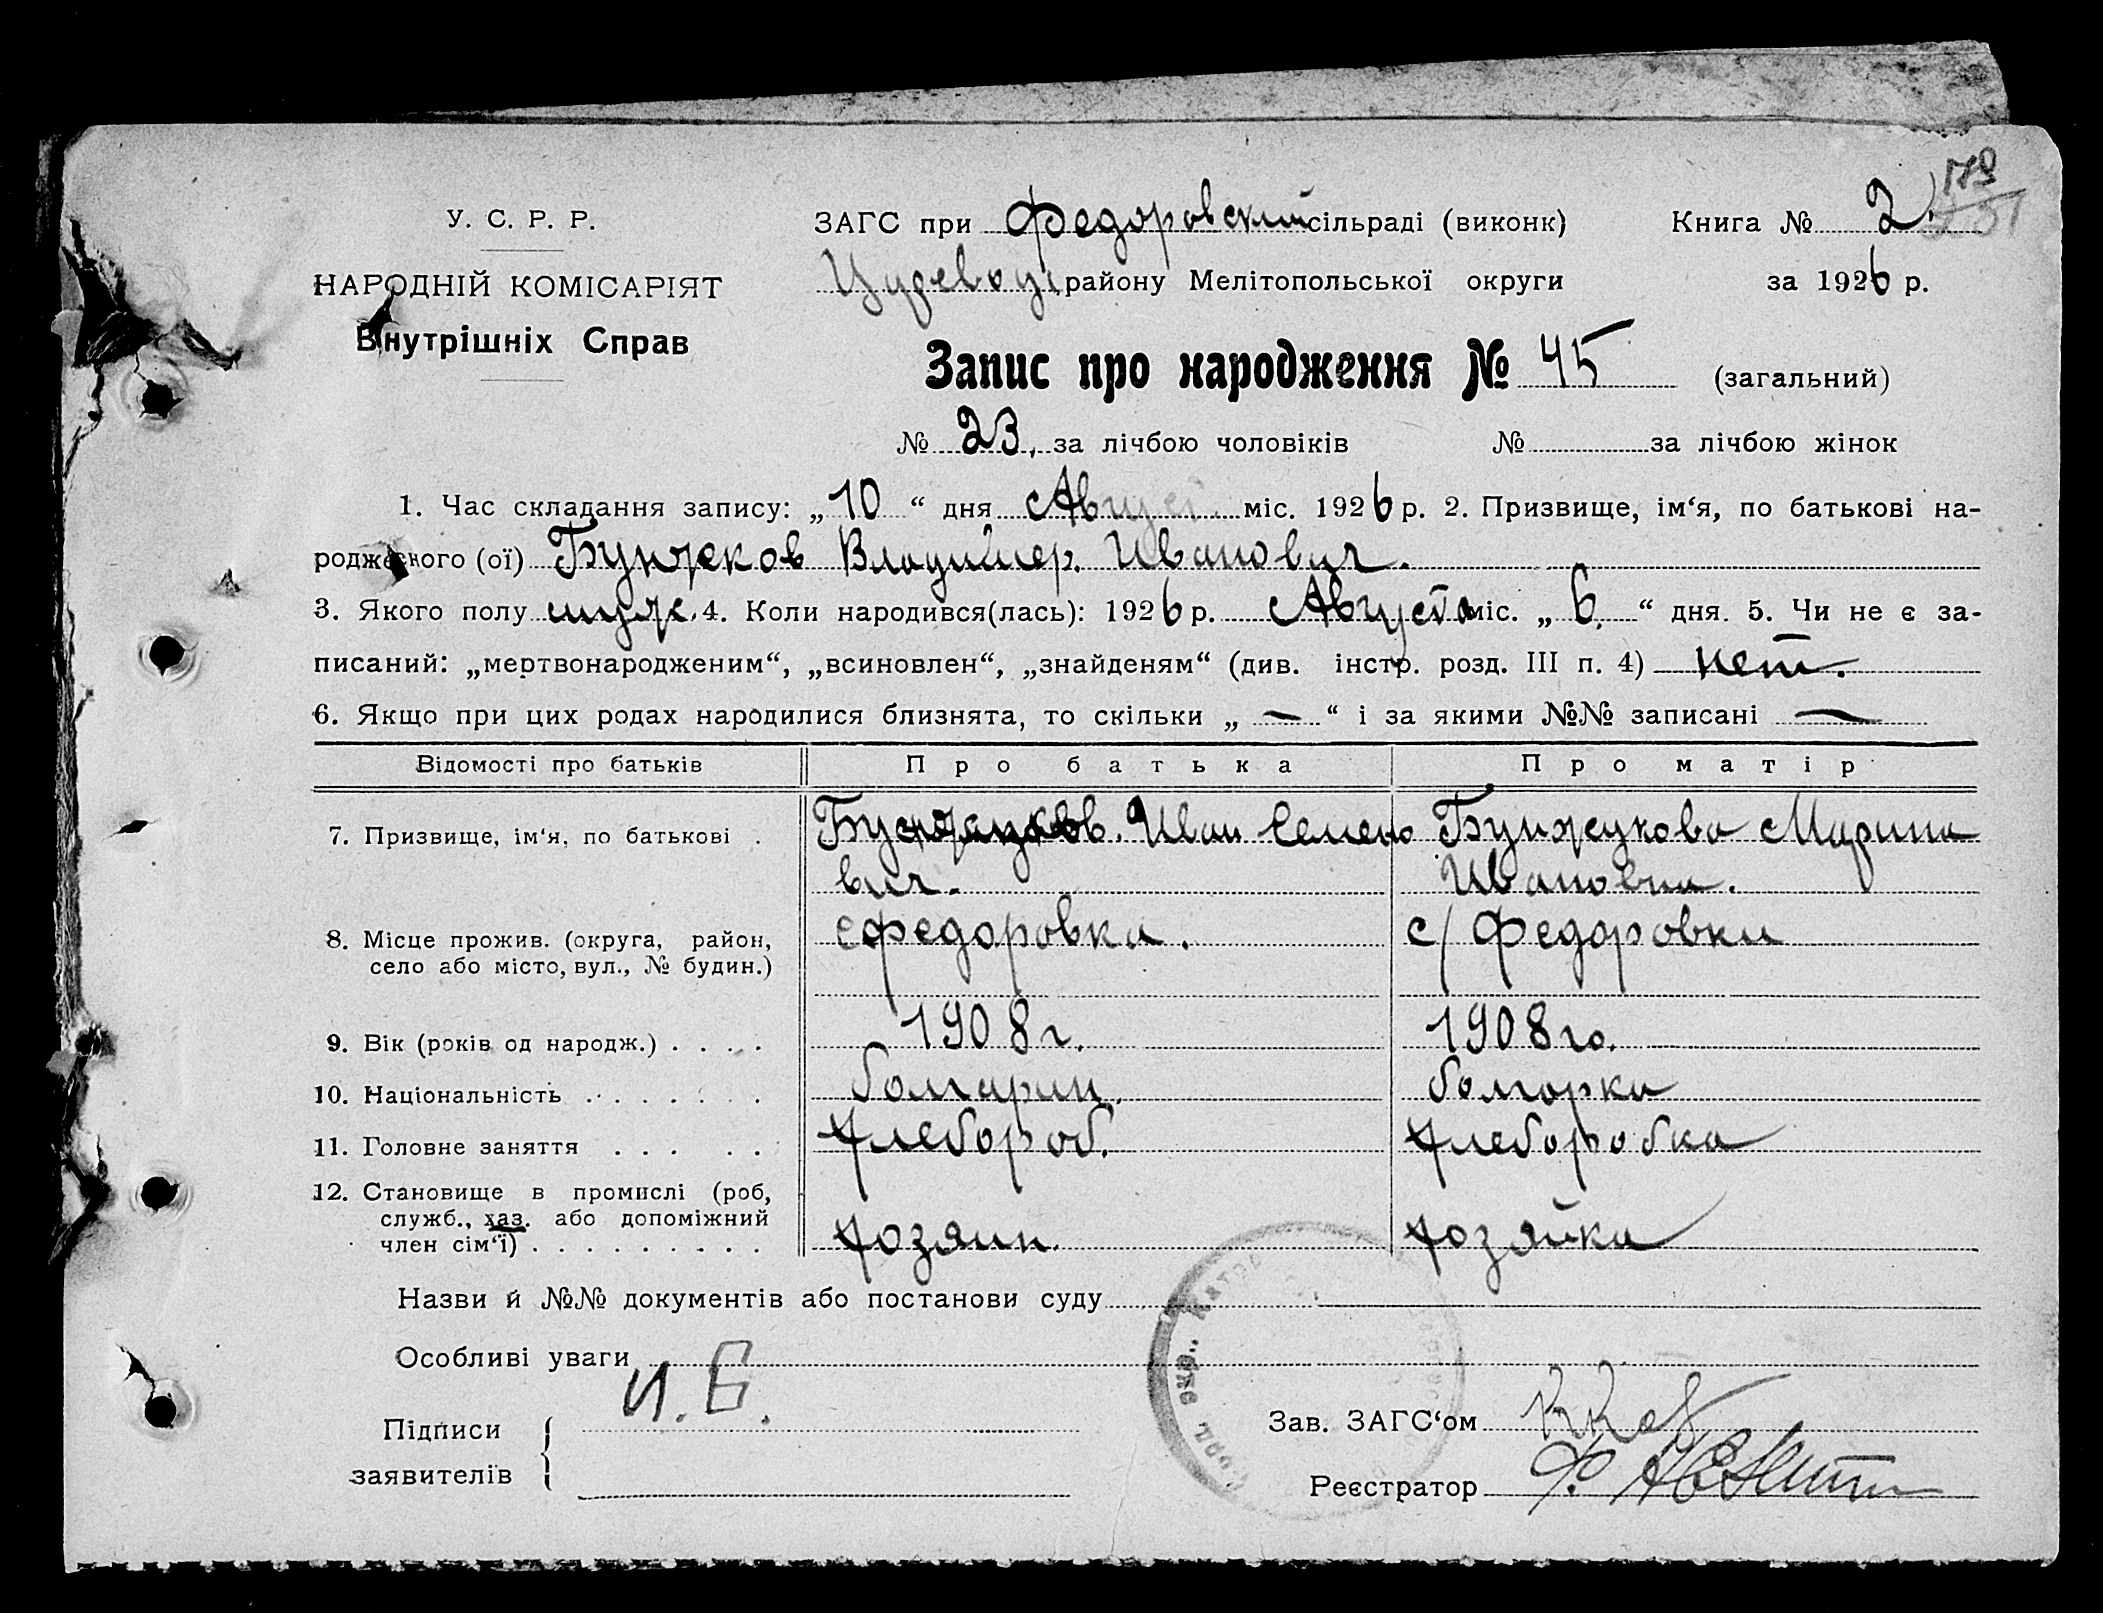 178
231
У. С. Р. Р. ЗАГС при Федоровский сільраді (виконк) Книга № 2.
НАРОДНІЙ КОМІСАРІЯТ району Мелітопольської округи за 1926 р.
Внутрішніх Справ
Запис про народження № 45 (загальний)
№ 23. за лічбою чоловіків № за лічбою жінок
1. Час складання запису: „10“ дня Август міс. 1926 р. 2. Призвище, ім‘я, по батькові на-
родженого (ої) Бунжеков Владимер. Иванович.
3. Якого полу муж. 4. Коли народився(лась): 1926 р. Августа міс. „6.“ дня. 5. Чи не є за-
писаний: „мертвонародженим“, „всиновлен“, „знайденям“ (див. інстр. розд. III п. 4) нет.
6. Якщо при цих родах народилися близнята, то скільки „ — “ і за якими №№ записані —
Відомості про батьків Про батька Про матір
7. Призвище, ім‘я, по батькові . Иван Семено Бунжукова Марина
вич. Ивановна.
8. Місце прожив. (округа, район, с федоровка. с/ Федоровки
село або місто, вул., № будин.)
9. Вік (років од народж.) . . . . 1908 г. 1908 го.
10. Національність . . . . . . . болгарин. болгорка
11. Головне заняття . . . . . хлебороб. хлеборобка
12. Становище в промислі (роб, хозяин. хозяйка
служб., хаз. або допоміжний
член сім‘ї) . . . . . . . . .
Назви й №№ документів або постанови суду
Особливі уваги
И. Б.
Підписи Зав. ЗАГС‘ом
заявителів Реєстратор